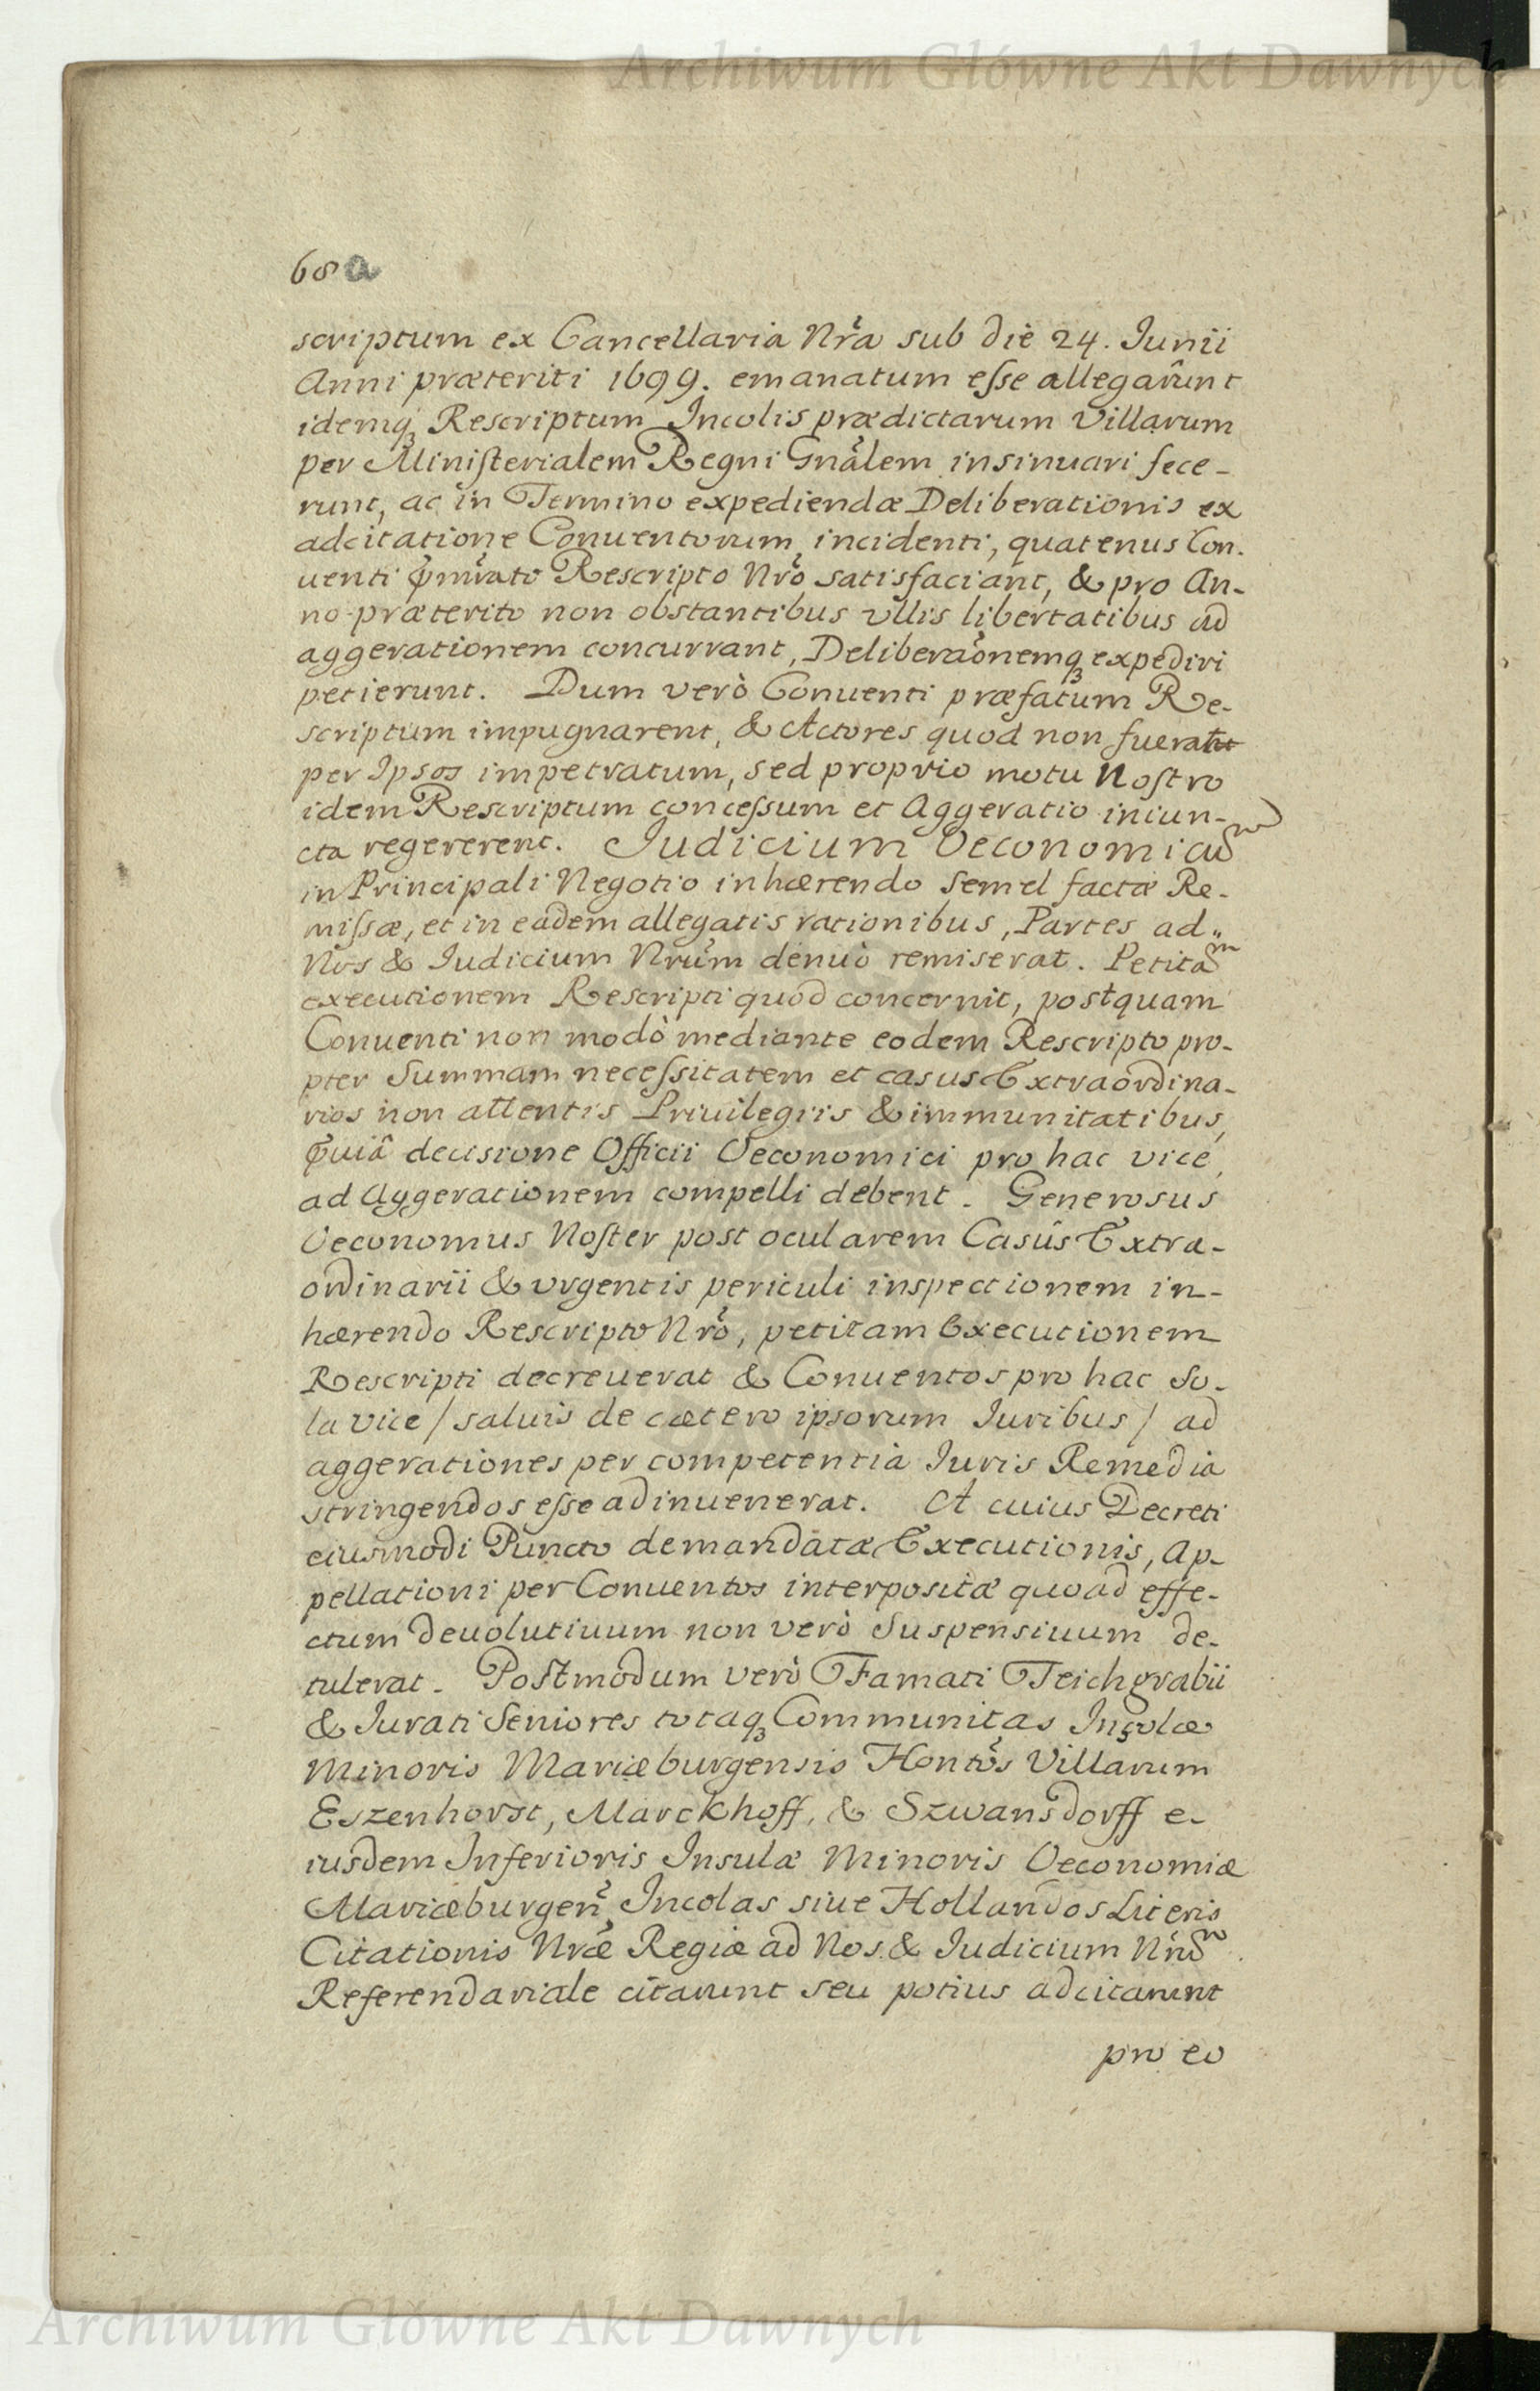 Archiwum Główne Akt Dawnych
68 a
scriptum ex Cancellaria Nrã sub die 24. Junii
Anni præteriti 1699. emanatum esse allegarunt
idemq₃ Rescriptum Incolis prædictarum Villarum
per Ministerialem Regni Gnãlem insinuari fece-
runt, ac in Termino expediendæ Deliberationis ex
adcitatione Conuentorum incidenti, quatenus Con-
uenti Rescripto Nrõ satisfaciant, & pro An-
no præterito non obstantibus vllis libertatibus ad
aggerationem concurrant, Deliberãonemq₃ expediri
petierunt. Dum verò Conuenti præfatum Re-
scriptum impugnarent, & Actores quod non fuerat
per Ipsos impetratum, sed proprio motu Nostro
idem Rescriptum concessum et Aggeratio iniun-
cta regererent. Judicium Oeconomicũ
in Principali Negotio inhærendo semel factæ Re-
missæ, et in eadem allegatis rationibus, Partes ad
Nos & Iudicium Nrũm denuò remiserat. Petitã
executionem Rescripti quod concernit, postquam
Conuenti non modò mediante eodem Rescripto pro-
pter Summam necessitatem et casus Extraordina-
rios non attentis Priuilegiis & immunitatibus,
decisione Officii Oeconomici pro hac vice,
ad Aggerationem compelli debent. Generosus
Oeconomus Noster post ocularem Casûs Extra-
ordinarii & vrgentis periculi inspectionem in-
hærendo Rescripto Nrõ, petitam Executionem
Rescripti decreuerat & Conuentos pro hac so-
la vice / saluis de cætero ipsorum Iuribus / ad
aggerationes per competentia Iuris Remedia
stringendos esse adinuenerat. A cuius Decreti
eiusmodi Puncto demandatæ Executionis, Ap-
pellationi per Conuentos interpositæ quoad effe-
ctum deuolutiuum non verò Suspensiuum de-
tulerat. Postmodum verò Famati Teichgrabii
& Iurati Seniores totaq₃ Communitas Insulæ
Minoris Mariæburgensis Hontõs Villarum
Eszenhorst, Marckhoff, & Szwansdorff e-
iusdem Inferioris Insulæ Minoris Oeconomiæ
Mariæburgeñ Incolas siue Hollandos Literis
Citationis Nrǣ Regiæ ad Nos & Iudicium Nrũ
Referendariale citarunt seu potius adcitarunt
pro eo
Archiwum Główne Akt Dawnych